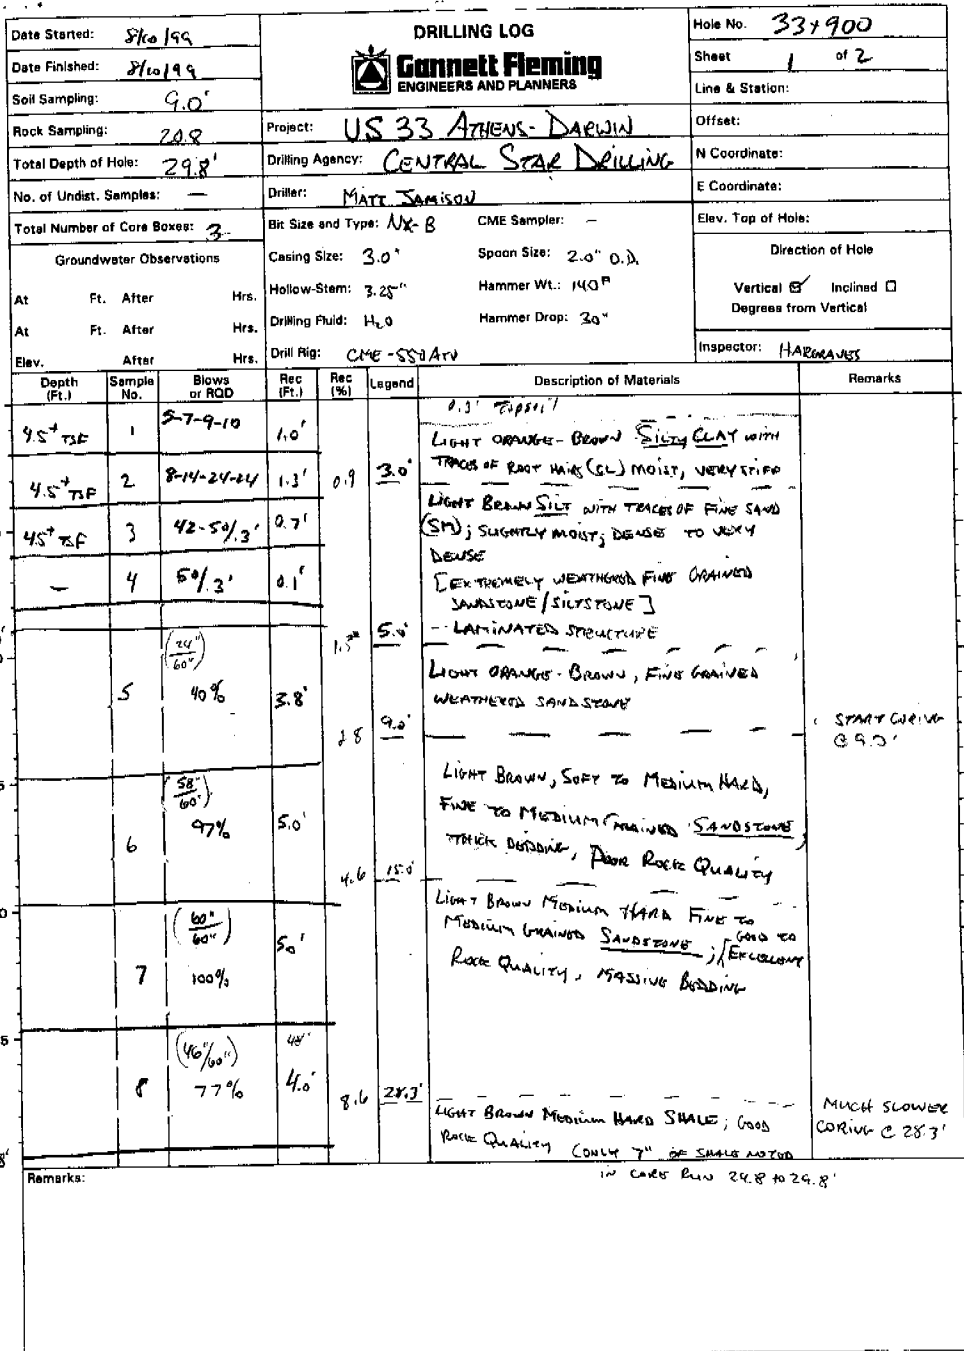 Date Started: 8/10/99
Date Finished: 8/10/99
Soil Sampling: 9.0'
Rock Sampling: 20.8
Total Depth of Hole: 29.8'
No. of Undist. Samples: —
Total Number of Core Boxes: 3
Groundwater Observations
At Ft. After Hrs.
At Ft. After Hrs.
Elev. After Hrs.
DRILLING LOG
Gannett Fleming
ENGINEERS AND PLANNERS
Project: US 33 ATHENS - DARWIN
Drilling Agency: CENTRAL STAR DRILLING
Driller: MATT JAMISON
Bit Size and Type: NX-B CME Sampler: –
Casing Size: 3.0" Spoon Size: 2.0" O.D.
Hollow-Stem: 3.25" Hammer Wt.: 140#
Drilling Fluid: H2O Hammer Drop: 30"
Drill Rig: CME-550 ATV
Hole No. 33+900
Sheet 1 of 2
Line & Station:
Offset:
N Coordinate:
E Coordinate:
Elev. Top of Hole:
Direction of Hole
Vertical ☑ Inclined ☐
Degrees from Vertical
Inspector: HARGRAVES
Depth (Ft.) Sample No. Blows or RQD Rec (Ft.) Rec (%) Legend Description of Materials Remarks
0.3' Topsoil
4.5+ TSF 1 5-7-9-10 1.0'
LIGHT ORANGE-BROWN SILTY CLAY WITH
TRACES OF ROOT HAIRS (CL) MOIST, VERY STIFF
4.5+ TSF 2 8-14-24-24 1.3' 0.9 3.0'
LIGHT BROWN SILT WITH TRACES OF FINE SAND
(SM); SLIGHTLY MOIST; DENSE TO VERY
DENSE
4.5+ TSF 3 42-50/.3' 0.7'
— 4 50/.3' 0.1'
[EXTREMELY WEATHERED FINE GRAINED
SANDSTONE/SILTSTONE]
-- LAMINATED STRUCTURE
5.0'
(24"/60")
5 40% 3.8'
LIGHT ORANGE-BROWN, FINE GRAINED
WEATHERED SANDSTONE
2.8 9.0'
START CORING
@ 9.0'
(58"/60")
6 97% 5.0'
LIGHT BROWN, SOFT TO MEDIUM HARD,
FINE TO MEDIUM GRAINED SANDSTONE,
THICK BEDDING, POOR ROCK QUALITY
4.6 15.0'
(60"/60")
7 100% 5.0'
LIGHT BROWN MEDIUM HARD FINE TO
MEDIUM GRAINED SANDSTONE; GOOD TO EXCELLENT
ROCK QUALITY, MASSIVE BEDDING
(46"/60") 48"
8 77% 4.0'
8.6 28.3'
LIGHT BROWN MEDIUM HARD SHALE; GOOD
ROCK QUALITY (ONLY 7" OF SHALE NOTED
IN CORE RUN 24.8 TO 29.8'
MUCH SLOWER
CORING @ 28.3'
Remarks: